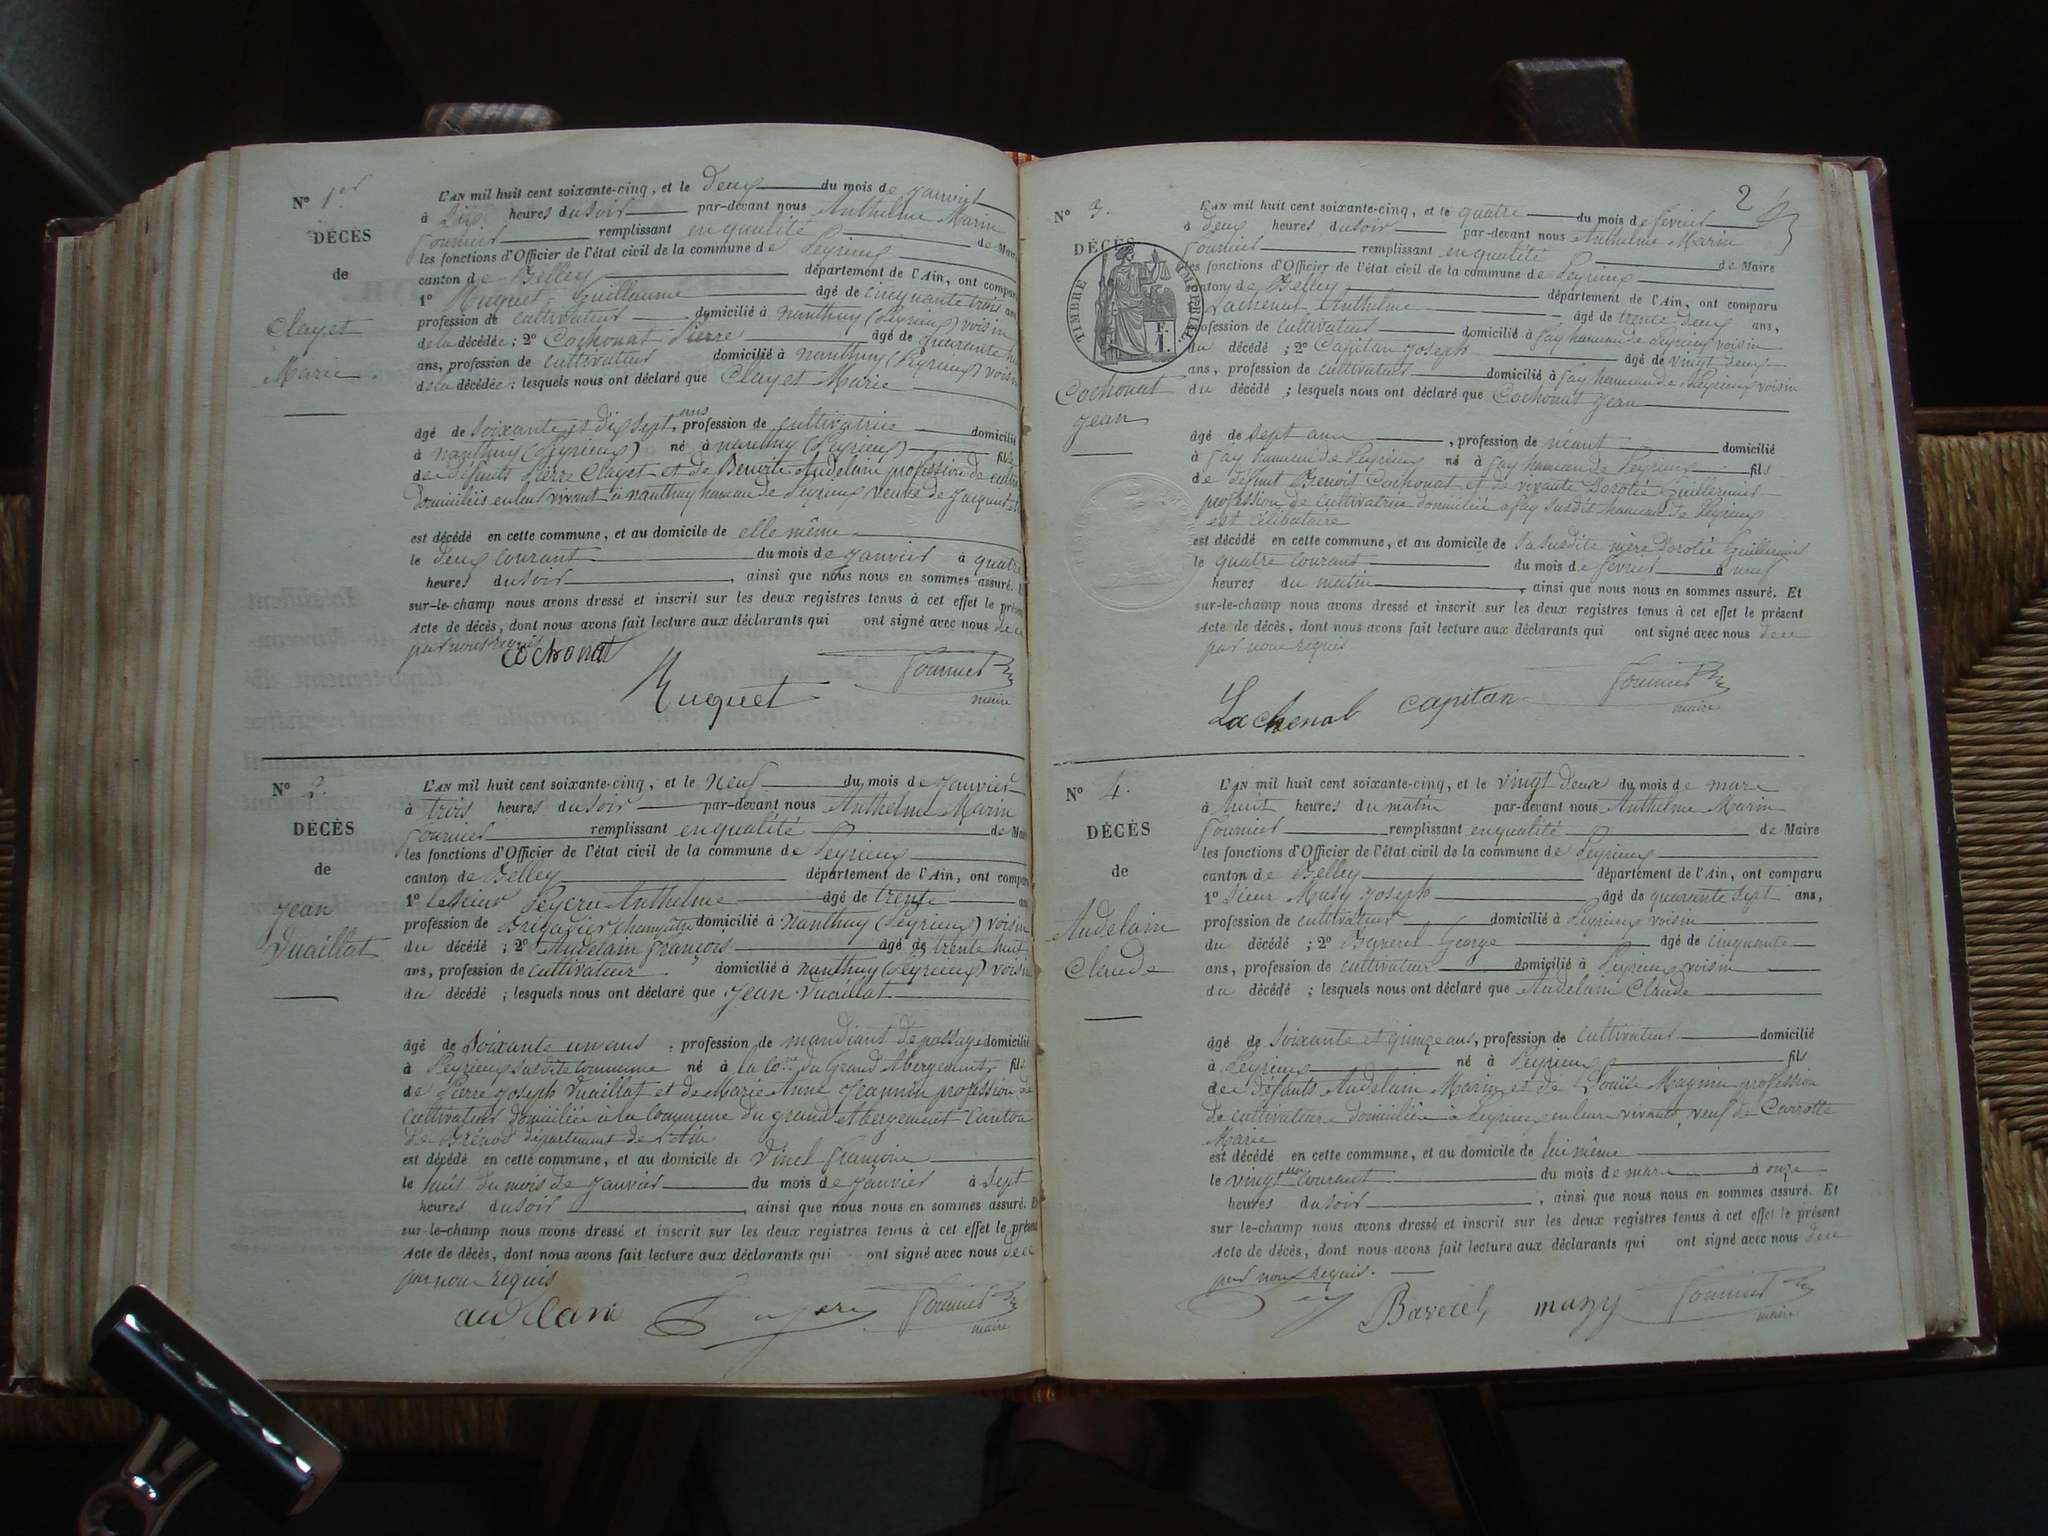 N° 1er
DÉCÈS
de
Clayet
Marie.
L'AN mil huit cent soixante-cinq, et le deux du mois de janvier
à Six heures du soir par-devant nous Anthelme Marin
Fournier remplissant en qualité de Maire
les fonctions d'Officier de l'état civil de la commune de Peyrieux
canton de Belley département de l'Ain, ont comparu
1° Huguet Guillaume âgé de cinquante trois ans
profession de cultivateur domicilié à nanthuy (Peyrieux) voisin
de la décédée ; 2° Cochonat Pierre âgé de quarante
ans, profession de cultivateur domicilié à nanthuy (Peyrieux) voisin
de la décédée ; lesquels nous ont déclaré que Clayet Marie
âgé de soixante et dix sept ans, profession de cultivatrice domicilié
à nanthuy (Peyrieux) né à nanthuy (Peyrieux) fille
de défunts Pierre Clayet et de Benoite Audelain profession de
domiciliés en leur vivant à nanthuy hameau de Peyrieux veuve de
est décédé en cette commune, et au domicile de elle même
le deux courant du mois de janvier à quatre
heures du soir, ainsi que nous nous en sommes assuré.
sur-le-champ nous avons dressé et inscrit sur les deux registres tenus à cet effet le présent
Acte de décès, dont nous avons fait lecture aux déclarants qui ont signé avec nous de ce
par nous requis
Cochonat
Huguet
Fournier
maire
N° 2.
DÉCÈS
de
Jean
Vuaillat
L'AN mil huit cent soixante-cinq, et le neuf du mois de janvier
à trois heures du soir par-devant nous Anthelme Marin
Fournier remplissant en qualité de Maire
les fonctions d'Officier de l'état civil de la commune de Peyrieux
canton de Belley département de l'Ain, ont comparu
1° le sieur Anthelme âgé de trente ans
profession de Brigadier champêtre domicilié à nanthuy (Peyrieux) voisin
du décédé ; 2° Audelain françois âgé de trente huit
ans, profession de cultivateur domicilié à nanthuy (Peyrieux) voisin
du décédé ; lesquels nous ont déclaré que Jean Vuaillat
âgé de soixante un ans, profession de mandiant de passage domicilié
à Peyrieux susdite commune né à la Cne du Grand Abergement fils
de Pierre Joseph Vuaillat et de Marie Anne Jeannin profession de
cultivateurs domiciliés à la commune du grand Abergement Canton
de Brénod département de l'Ain
est décédé en cette commune, et au domicile de Vinel
le huit du mois de janvier du mois de janvier à sept
heures du soir, ainsi que nous nous en sommes assuré. Et
sur-le-champ nous avons dressé et inscrit sur les deux registres tenus à cet effet le présent
Acte de décès, dont nous avons fait lecture aux déclarants qui ont signé avec nous de ce
par nous requis
audelain
Fournier
maire
2
N° 3.
DÉCÈS
TIMBRE IMPÉRIAL
1 F.
Cochonat
Jean
L'AN mil huit cent soixante-cinq, et le quatre du mois de février
à deux heures du soir par-devant nous Anthelme Marin
Fournier remplissant en qualité de Maire
les fonctions d'Officier de l'état civil de la commune de Peyrieux
canton de Belley département de l'Ain, ont comparu
Lachenal Anthelme âgé de trente deux ans,
profession de cultivateur domicilié à fay hameau de Peyrieux voisin
du décédé ; 2° Capitan Joseph âgé de vingt deux
ans, profession de cultivateur domicilié à fay hameau de Peyrieux voisin
du décédé ; lesquels nous ont déclaré que Cochonat Jean
âgé de sept ans, profession de néant domicilié
à fay hameau de Peyrieux né à fay hameau de Peyrieux fils
de défunt Benoit Cochonat et de vivante Dorotée Guillermier
profession de cultivatrice domiciliée à fay susdit hameau de Peyrieux
est célibataire
est décédé en cette commune, et au domicile de sa susdite mère Dorotée Guillermier
le quatre courant du mois de février à neuf
heures du matin, ainsi que nous nous en sommes assuré. Et
sur-le-champ nous avons dressé et inscrit sur les deux registres tenus à cet effet le présent
Acte de décès, dont nous avons fait lecture aux déclarants qui ont signé avec nous de ce
par nous requis
Lachenal capitan
Fournier
maire
N° 4.
DÉCÈS
de
Audelain
Claude
L'AN mil huit cent soixante-cinq, et le vingt deux du mois de mars
à huit heures du matin par-devant nous Anthelme Marin
Fournier remplissant en qualité de Maire
les fonctions d'Officier de l'état civil de la commune de Peyrieux
canton de Belley département de l'Ain, ont comparu
1° Sieur Musy Joseph âgé de quarante sept ans,
profession de cultivateur domicilié à Peyrieux voisin
du décédé ; 2° Baverel George âgé de cinquante
ans, profession de cultivateur domicilié à Peyrieux voisin
du décédé ; lesquels nous ont déclaré que Audelain Claude
âgé de soixante et quinze ans, profession de cultivateur domicilié
à Peyrieux né à Peyrieux fils
de défunts Audelain Marin et de Louise Magnin profession
de cultivateurs domiciliés à Peyrieux en leurs vivants, veuf de Carrotte
Marie
est décédé en cette commune, et au domicile de lui même
le vingt un courant du mois de mars à onze
heures du soir, ainsi que nous nous en sommes assuré. Et
sur-le-champ nous avons dressé et inscrit sur les deux registres tenus à cet effet le présent
Acte de décès, dont nous avons fait lecture aux déclarants qui ont signé avec nous de ce
par nous requis.
Baverel, muzy
Fournier
maire